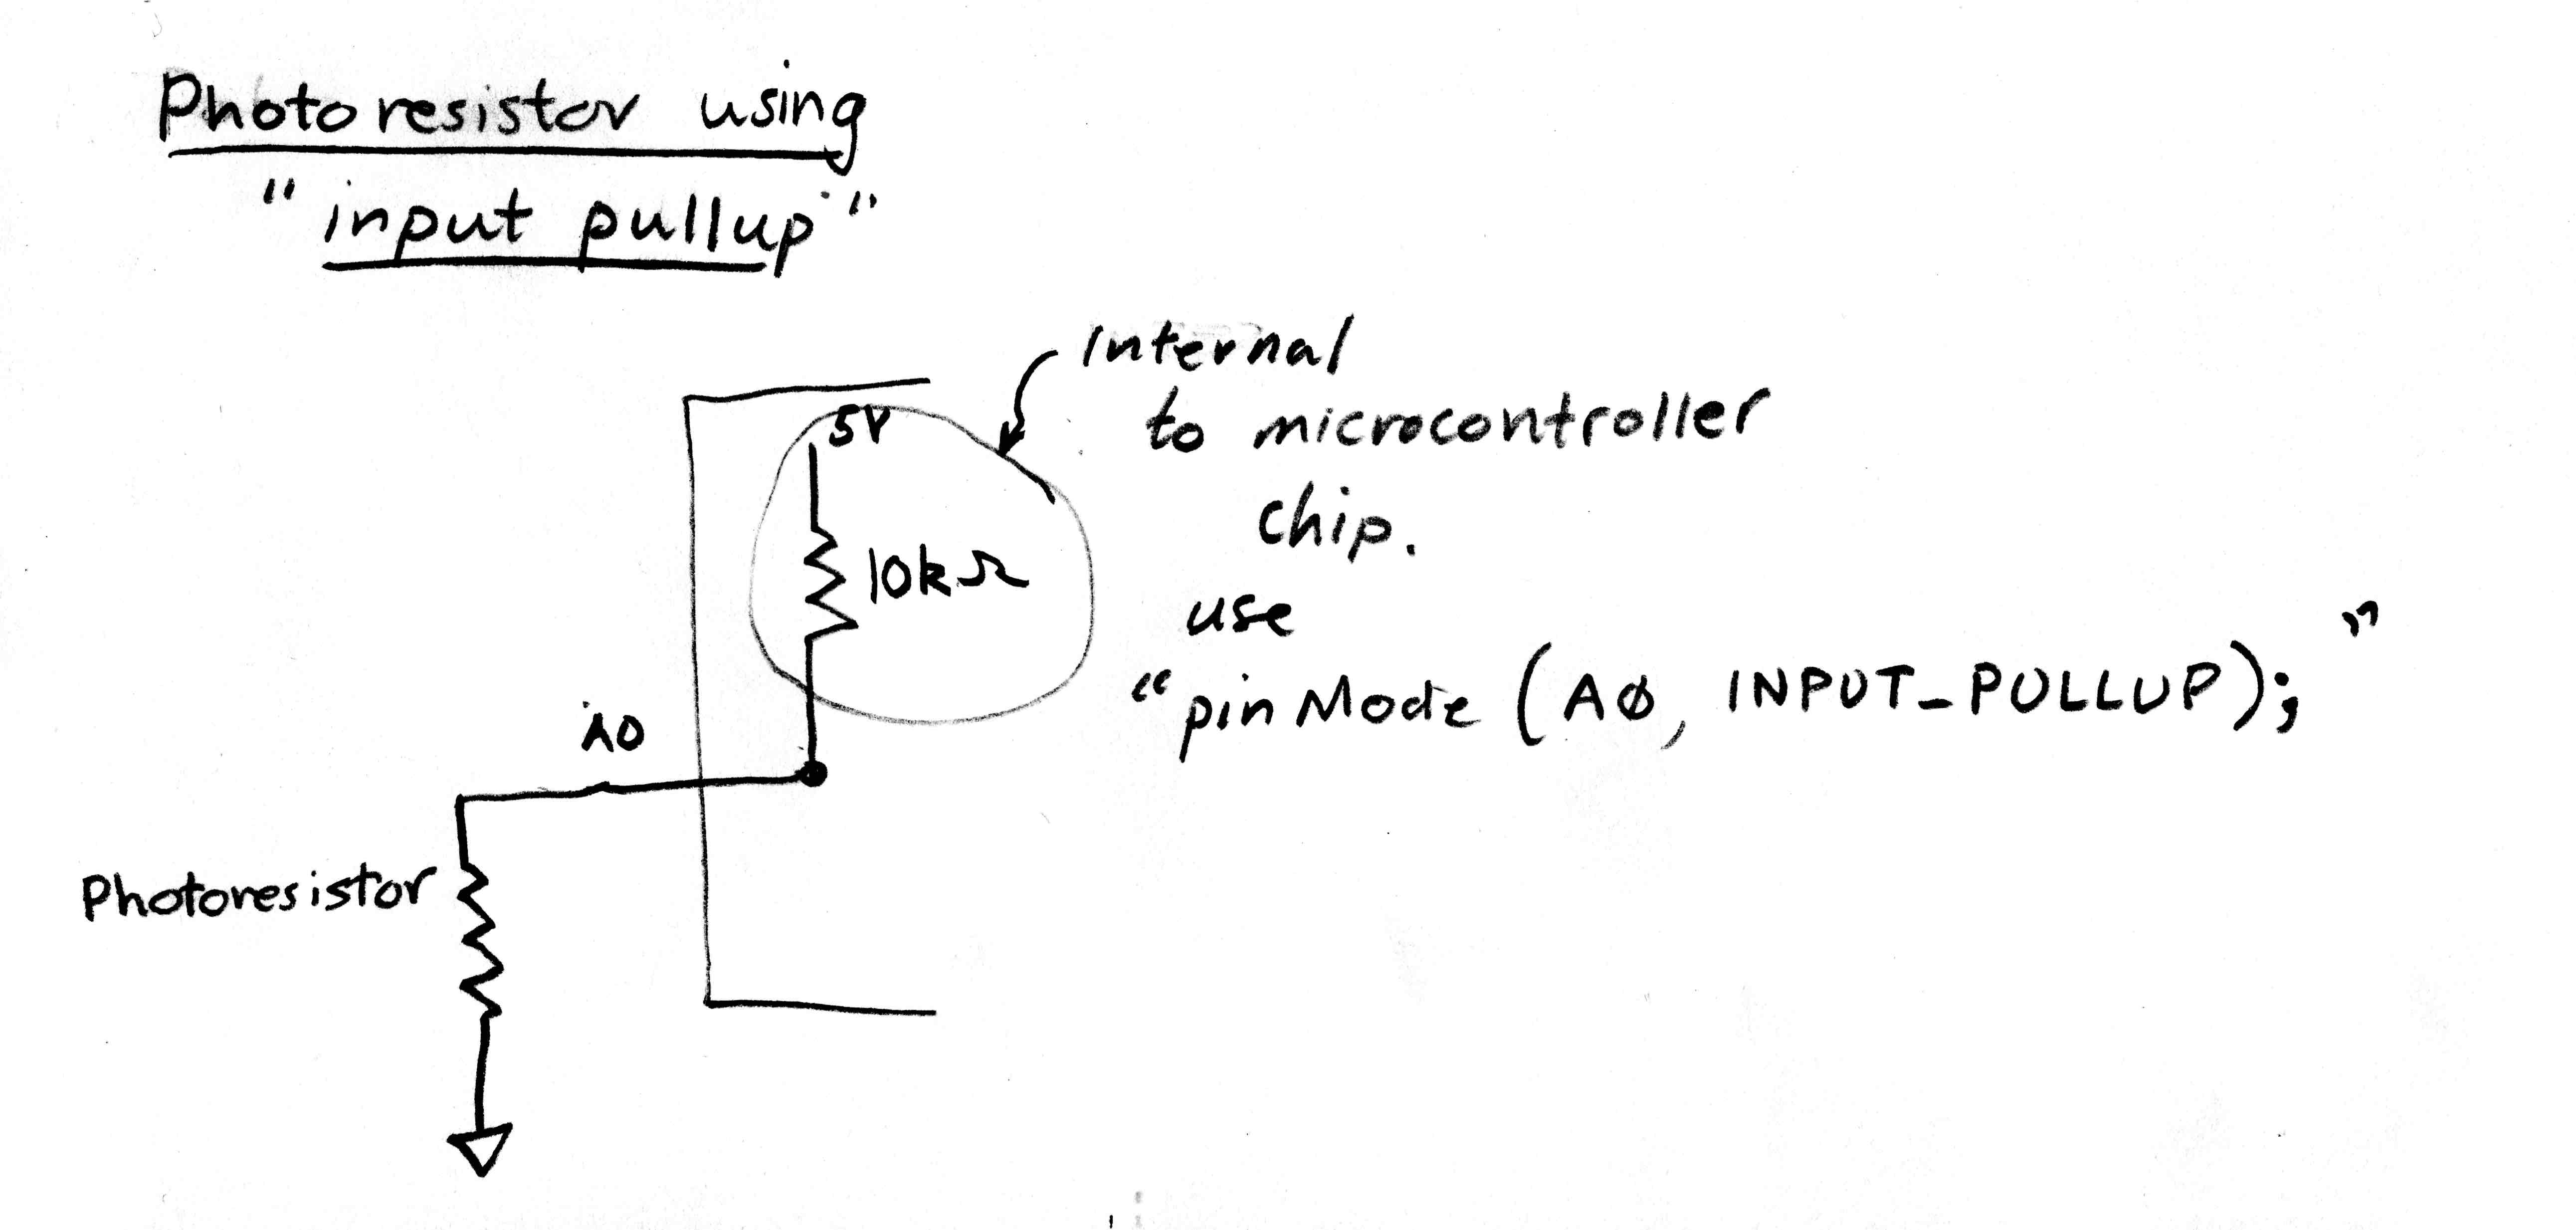 Photoresistor using
"input pullup"
Internal
to microcontroller
chip.
use
"pinMode (AØ, INPUT_PULLUP);"
5V
10kΩ
A0
Photoresistor